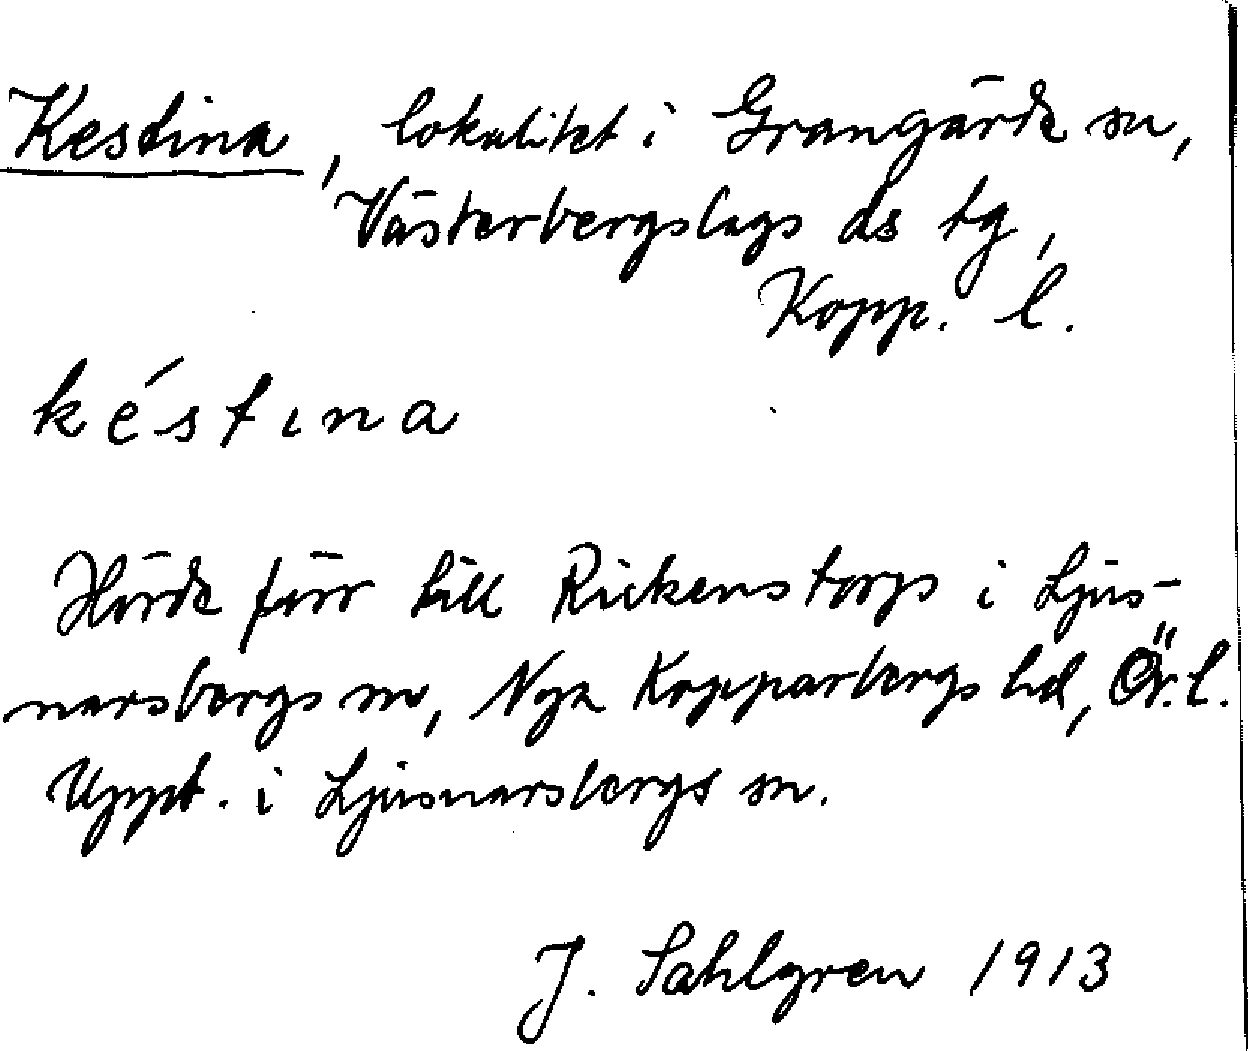 Kestina, lokalitet i Grangärde sn,
Västerbergslags ds tg,
Kopp. l.
késtına
Hörde förr till Rickenstorps i Ljus-
narsbergs sn, Nya Kopparbergs hd, Ör. l.
Uppt. i Ljusnarsbergs sn.
J. Sahlgren 1913